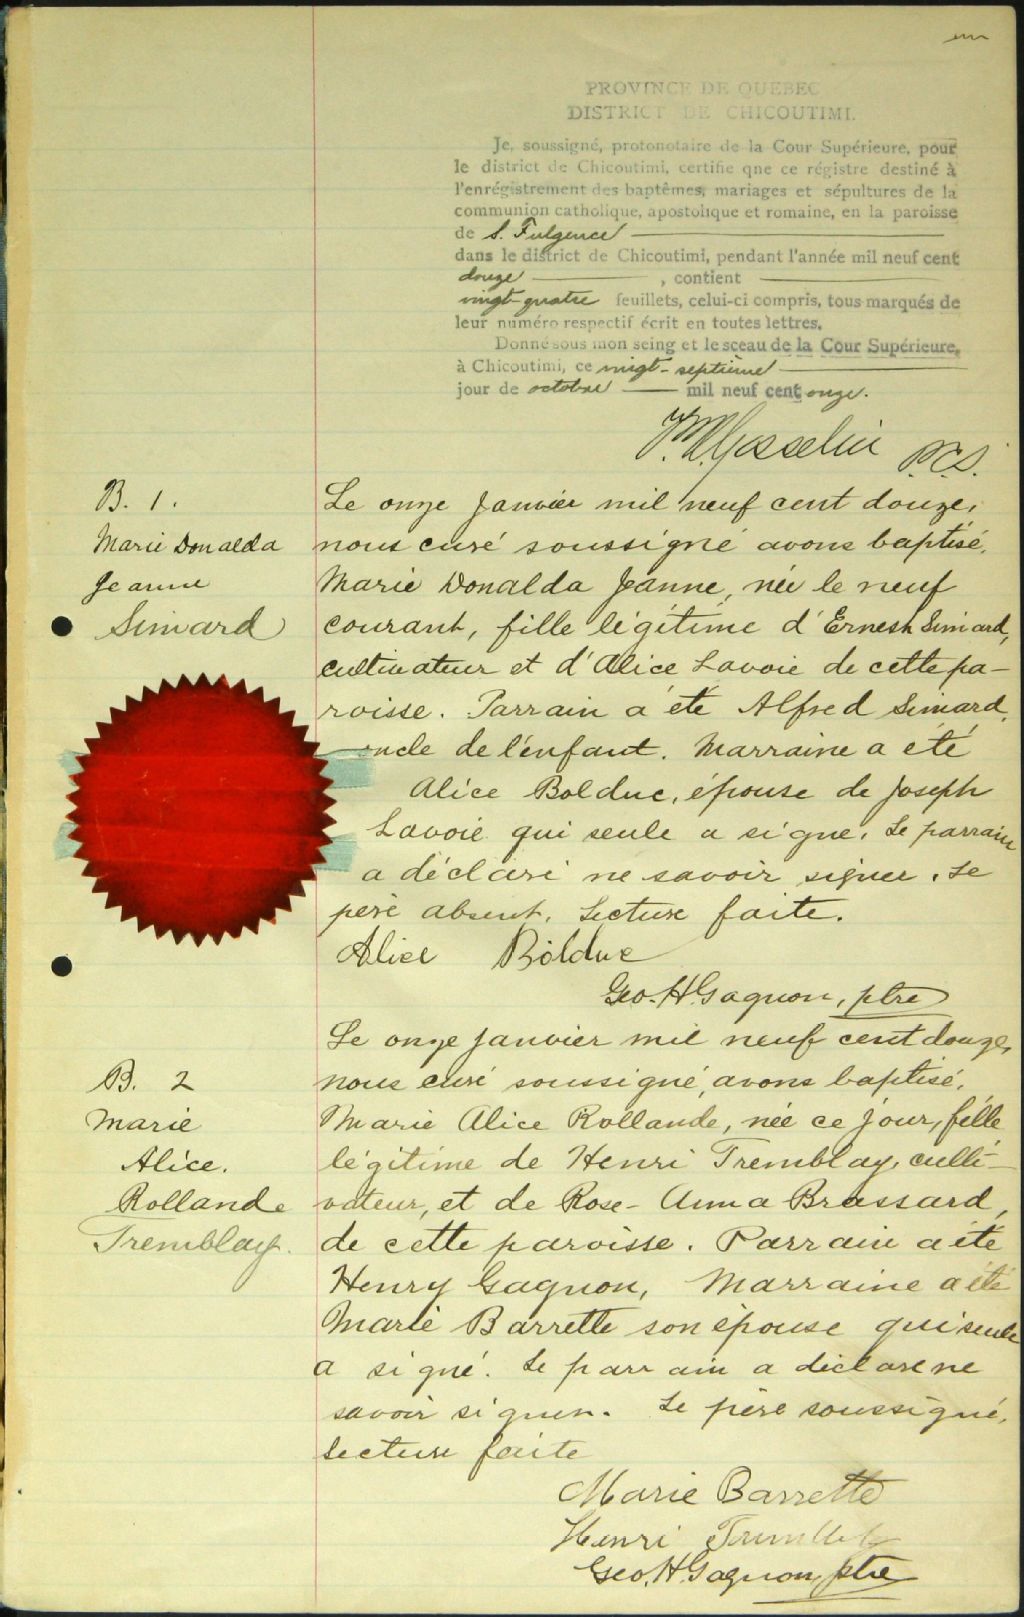 un
PROVINCE DE QUEBEC
DISTRICT DE CHICOUTIMI.
Je, soussigné, protonotaire de la Cour Supérieure, pour
le district de Chicoutimi, certifie qne ce régistre destiné à
l'enrégistrement des baptêmes, mariages et sépultures de la
communion catholique, apostolique et romaine, en la paroisse
de S. Fulgence
dans le district de Chicoutimi, pendant l'année mil neuf cent
douze, contient
vingt-quatre feuillets, celui-ci compris, tous marqués de
leur numéro respectif écrit en toutes lettres.
Donné sous mon seing et le sceau de la Cour Supérieure,
à Chicoutimi, ce vingt-septième
jour de octobre mil neuf cent onze.
Gosselin P.C.S.
B. 1.
Marie Donalda
Jeanne
Simard
Le onze Janvier mil neuf cent douze,
nous curé soussigné avons baptisé,
Marie Donalda Jeanne, née le neuf
courant, fille légitime d'Ernest Simard,
cultivateur et d'Alice Lavoie de cette pa-
roisse. Parrain a été Alfred Simard,
oncle de l'enfant. Marraine a été
Alice Bolduc, épouse de Joseph
Lavoie qui seule a signé. Le parrain
a déclaré ne savoir signer. Le
père absent. Lecture faite.
Alice Bolduc
Geo. H. Gagnon, ptre
B. 2
Marie
Alice.
Rollande
Tremblay.
Le onze Janvier mil neuf cent douze,
nous curé soussigné, avons baptisé,
Marie Alice Rollande, née ce jour, fille
légitime de Henri Tremblay, culti-
vateur, et de Rose-Anna Brassard,
de cette paroisse. Parrain a été
Henry Gagnon, Marraine a été
Marie Barrette son épouse qui seule
a signé. Le parrain a déclaré ne
savoir signer. Le père soussigné,
Lecture faite
Marie Barrette
Henri Tremblay
Geo. H. Gagnon, ptre